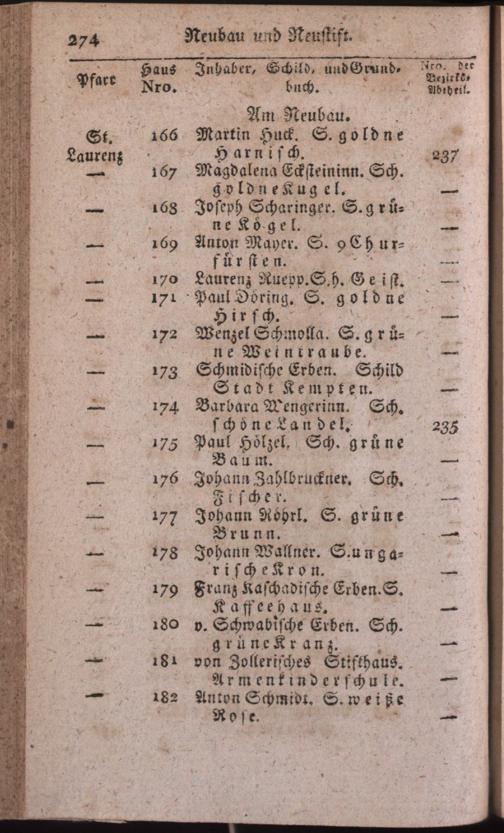 274 Neubau und Neustift.
Pfarr Haus Nro. Inhaber, Schild, und Grund- buch. Nro. der Bezirks- Abtheil.
Am Neubau.
St. 166 Martin Huck. S. goldne
Laurenz Harnisch. 237
— 167 Magdalena Ecksteininn. Sch.
goldne Kugel. —
— 168 Joseph Scharinger. S. grü-
ne Kögel. —
— 169 Anton Mayer. S. 9 Chur-
fürsten. —
— 170 Laurenz Ruepp. S. h. Geist. —
— 171 Paul Döring. S. goldne
Hirsch. —
— 172 Wenzel Schmolla. S. grü-
ne Weintraube. —
— 173 Schmidische Erben. Schild
Stadt Kempten. —
— 174 Barbara Wengerinn. Sch.
schöne Landel. 235
— 175 Paul Hölzel. Sch. grüne
Baum. —
— 176 Johann Zahlbruckner. Sch.
Fischer. —
— 177 Johann Röhrl. S. grüne
Brunn. —
— 178 Johann Wallner. S. unga-
rische Kron. —
— 179 Franz Kaschadische Erben. S.
Kaffeehaus. —
— 180 v. Schwabische Erben. Sch.
grüne Kranz. —
— 181 von Zollerisches Stifthaus.
Armenkinderschule. —
— 182 Anton Schmidt. S. weiße
Rose. —